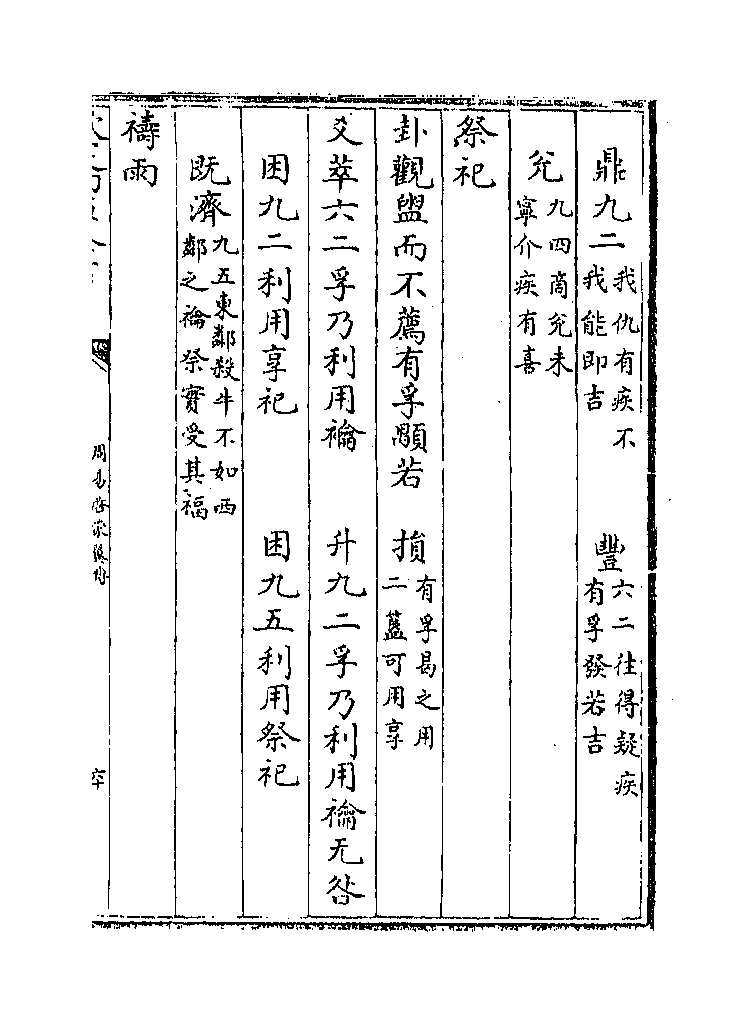 鼎九二我仇有疾不我能即吉　豐六二往得疑疾有孚發若吉
兊九四啇兊未寧介疾有喜
祭祀
卦觀盥而不薦有孚顒若　損有孚曷之用二簋可用享
爻萃六二孚乃利用禴　升九二孚乃利用禴无咎
困九二利用享祀　困九五利用祭祀
既濟九五東鄰殺牛不如西鄰之禴祭實受其福
禱雨
周易啓蒙翼傳
六十